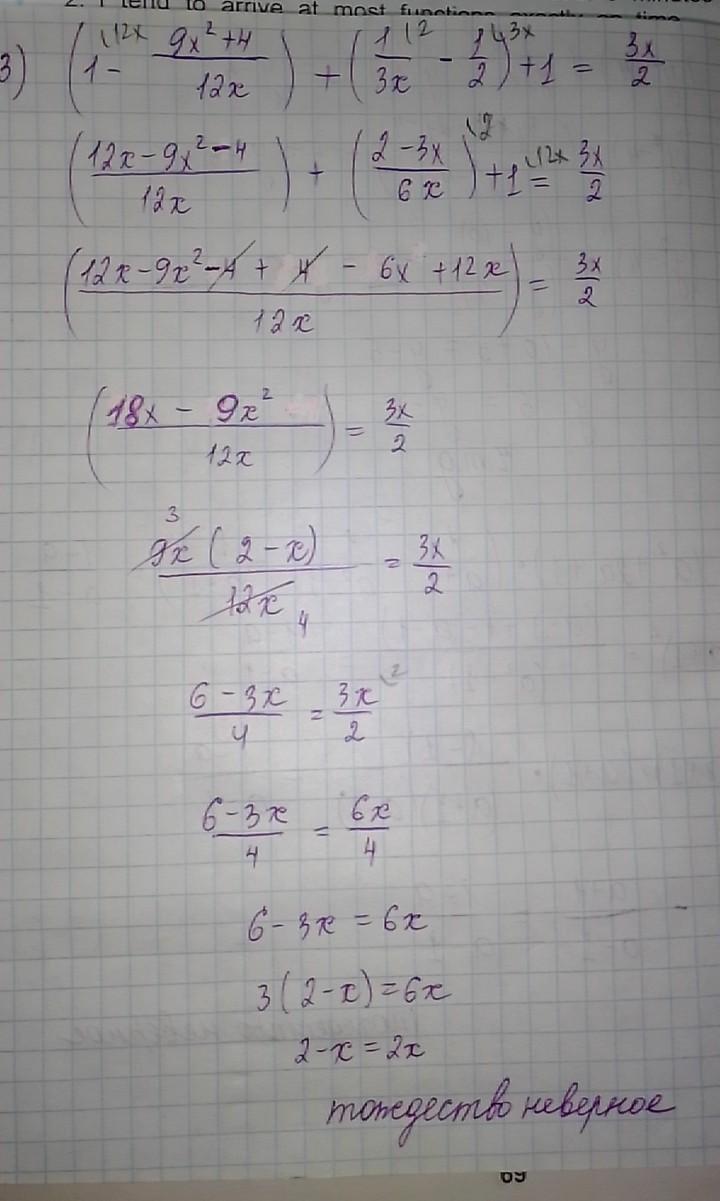 2. I tend to arrive at most functions exactly on time
3) (1\12x - (9x²+4)/(12x)) + (1/(3x)\2 - 1/2\3x) + 1 = 3x/2
((12x-9x²-4)/(12x)) + ((2-3x)/(6x))\2 + 1\12x = 3x/2
((12x-9x²-4+4-6x+12x)/(12x)) = 3x/2
((18x-9x²)/(12x)) = 3x/2
3 9x(2-x)/(12x) 4 = 3x/2
(6-3x)/4 = 3x/2\2
(6-3x)/4 = 6x/4
6-3x = 6x
3(2-x) = 6x
2-x = 2x
тождество неверное
69